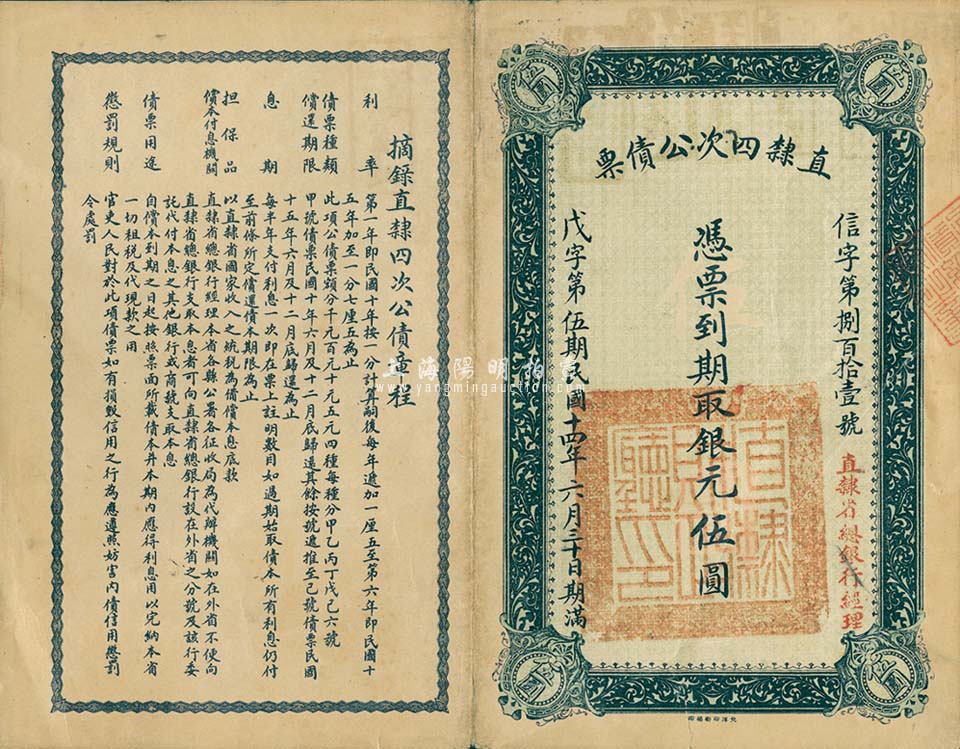 直隸四次公債票
信字第捌百拾壹號
直隸省總銀行經理
憑票到期取銀元伍圓
戊字第伍期民國十四年六月三十日期滿
直隸財政廳之印
伍圓
伍圓
伍圓
伍圓
北洋印刷局印
摘錄直隸四次公債章程
利率 第一年即民國十年按一分計算嗣後每年遞加一厘五至第六年即民國十
五年加至一分七厘五為止
債票種類 此項公債票額分千元百元十元五元四種每種分甲乙丙丁戊己六號
償還期限 甲號債票民國十年六月及十二月底歸還其餘按號遞推至己號債票民國
十五年六月及十二月底歸還為止
息期 每半年支付利息一次即在票上註明數目如過期始取債本所有利息仍付
至前條所定償還債本期限為止
担保品 以直隸省國家收入之統稅為備償本息底款
償本付息機關 直隸省總銀行經理本省各縣公署各征收局為代辦機關如在外省不便向
直隸省總銀行支取本息者可向直隸省總銀行設在外省之分號及該行委
託代付本息之其他銀行或商號支取本息
債票用途 自償本到期之日起按照票面所載債本并本期內應得利息用以完納本省
一切租稅及代現款之用
懲罰規則 官吏人民對於此項債票如有損毀信用之行為應遵照妨害內債信用懲罰
令處罰
上海陽明拍賣
www.yangmingauction.com